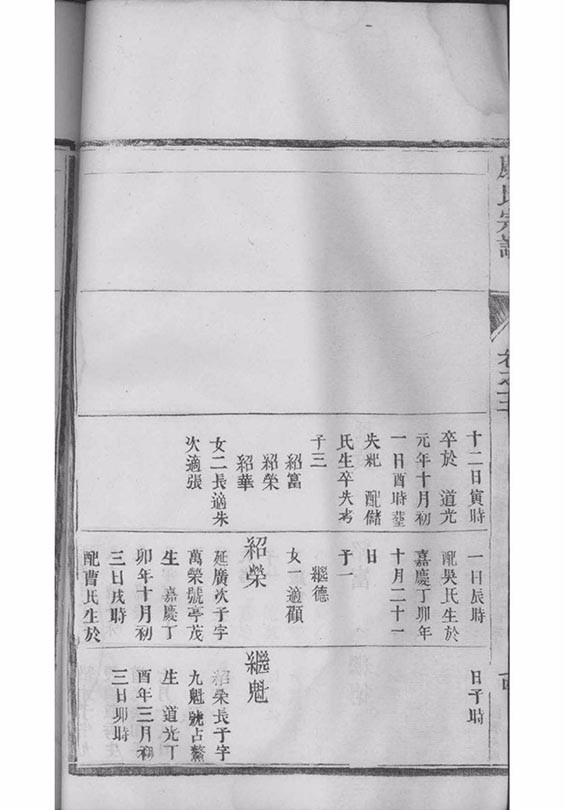 氏宗譜
卷之三
十二日寅時
卒於 道光
元年十月初
一日酉時塟
失紀 配儲
氏生卒失考
子三
紹富
紹榮
紹華
女二長適朱
次適張
一日辰時
配吳氏生於
嘉慶丁卯年
十月二十一
日
子一
繼德
女一適顧
紹榮
延廣次子字
萬榮號亭茂
生 嘉慶丁
卯年十月初
三日戌時
配曹氏生於
日子時
繼魁
紹榮長子字
九魁號占鰲
生 道光丁
酉年三月初
三日卯時